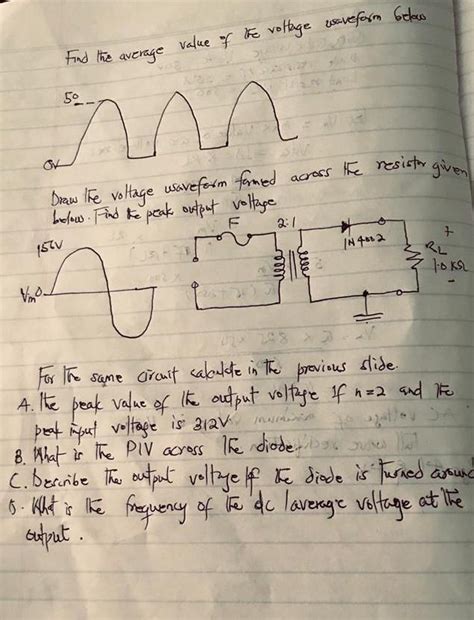 Find the average value of the voltage waveform below
50
0V
Draw the voltage waveform formed across the resistor given
below. Find the peak output voltage
156V
Vin 0
F
2:1
1N4002
+
RL
1.0 kΩ
-
For the same circuit calculate in the previous slide.
A. The peak value of the output voltage if n=2 and the
peak input voltage is 312V
B. What is the PIV across the diode.
C. Describe the output voltage if the diode is turned around
D. What is the frequency of the dc/average voltage at the
output.